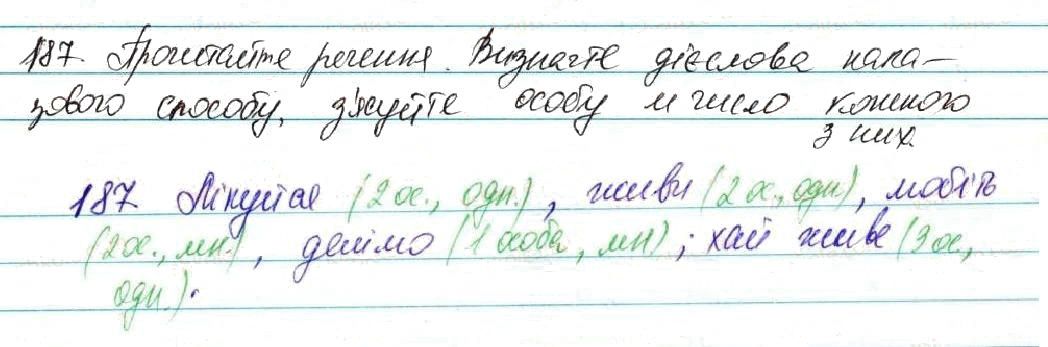 187. Прочитайте речення. Визначте дієслова нака-
зового способу, з'ясуйте особу й число кожного
з них
187. Пікуйся (2 ос., одн.), живи (2 ос., одн), любіть
(2 ос., мн.), делімо (1 особа, мн); хай живе (3 ос.,
одн.).